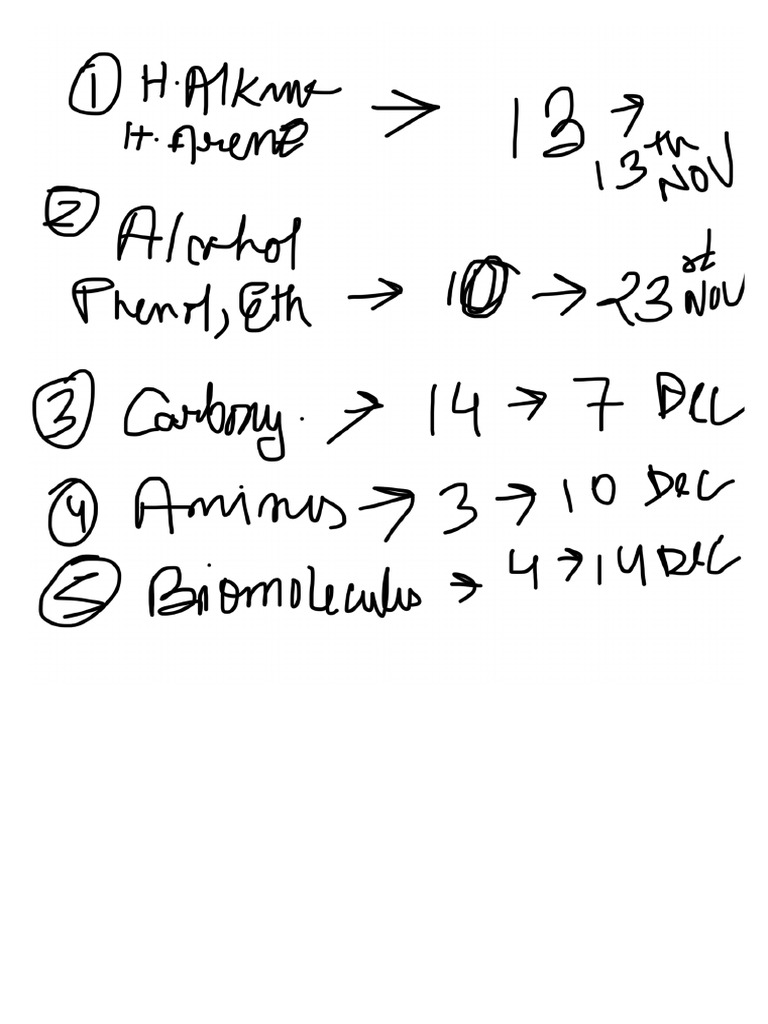 ① H. Alkane → 13 →
H. Arene 13th NOV
② Alcohol
Phenol, Eth → 10 → 23st NOV
③ Carbony. → 14 → 7 DEC
④ Amines → 3 → 10 DEC
⑤ Biomolecules → 4 → 14 DEC